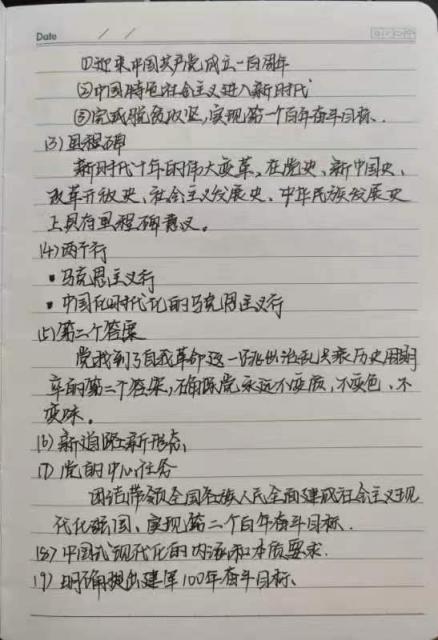 Date / /
①迎来中国共产党成立一百周年
②中国特色社会主义进入新时代
③完成脱贫攻坚,实现第一个百年奋斗目标.
(3)里程碑
新时代十年的伟大变革,在党史、新中国史、
改革开放史、社会主义发展史、中华民族发展史
上具有里程碑意义。
(4)两个行
·马克思主义行
·中国化时代化的马克思主义行
(5)第二个答案
党找到了自我革命这一跳出治乱兴衰历史周期
率的第二个答案,确保党永远不变质,不变色,不
变味。
(6)新道路新形态,
(7)党的中心任务
团结带领全国各族人民全面建成社会主义现
代化强国、实现第二个百年奋斗目标.
(8)中国式现代化的内涵和本质要求.
(9)明确提出建军100年奋斗目标、